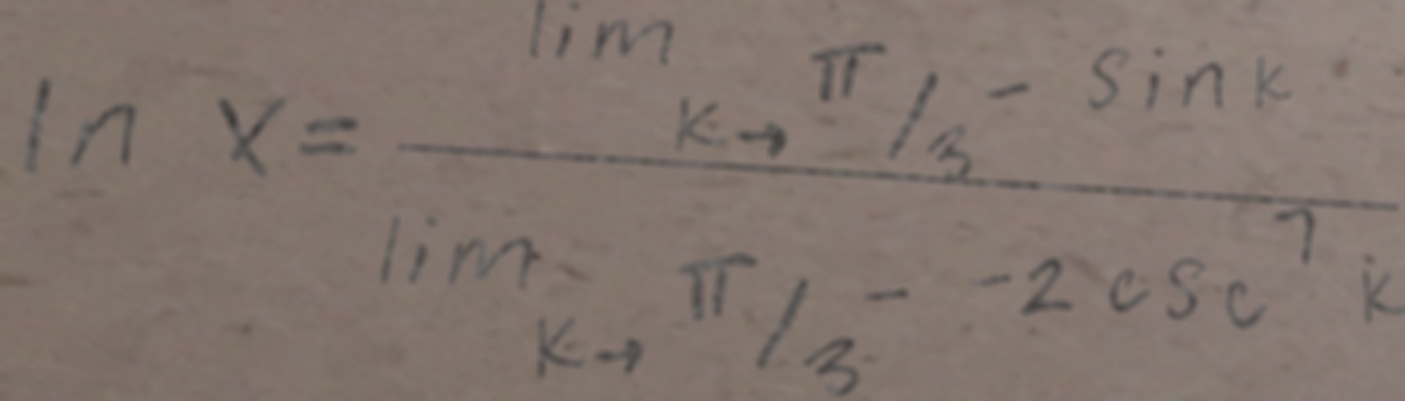 ln x = lim k→π/3⁻ sin k / lim k→π/3⁻ -2 csc⁷ k